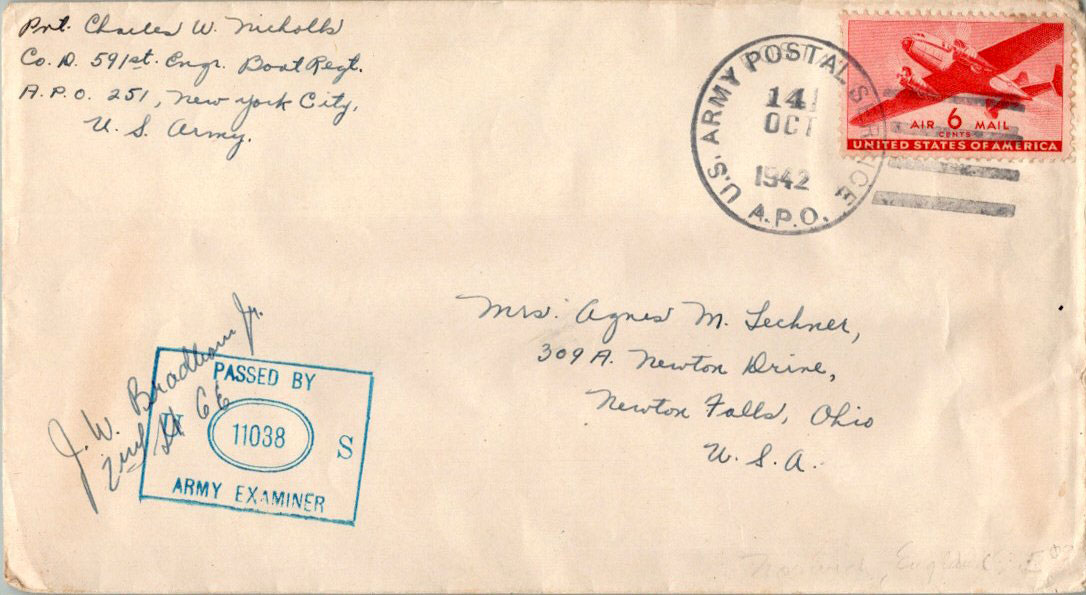 Pvt. Charles W. Nicholls
Co. D. 591st. Engr. Boat Regt.
A.P.O. 251, New York City,
U. S. Army.
U.S. ARMY POSTAL SERVICE
14
OCT
1942
A.P.O.
AIR 6 MAIL
CENTS
UNITED STATES OF AMERICA
Mrs. Agnes M. Lechner,
309 A. Newton Drive,
Newton Falls, Ohio
U. S. A.
J. W. Bradham Jr.
2nd Lt CE
PASSED BY
U 11038 S
ARMY EXAMINER
England